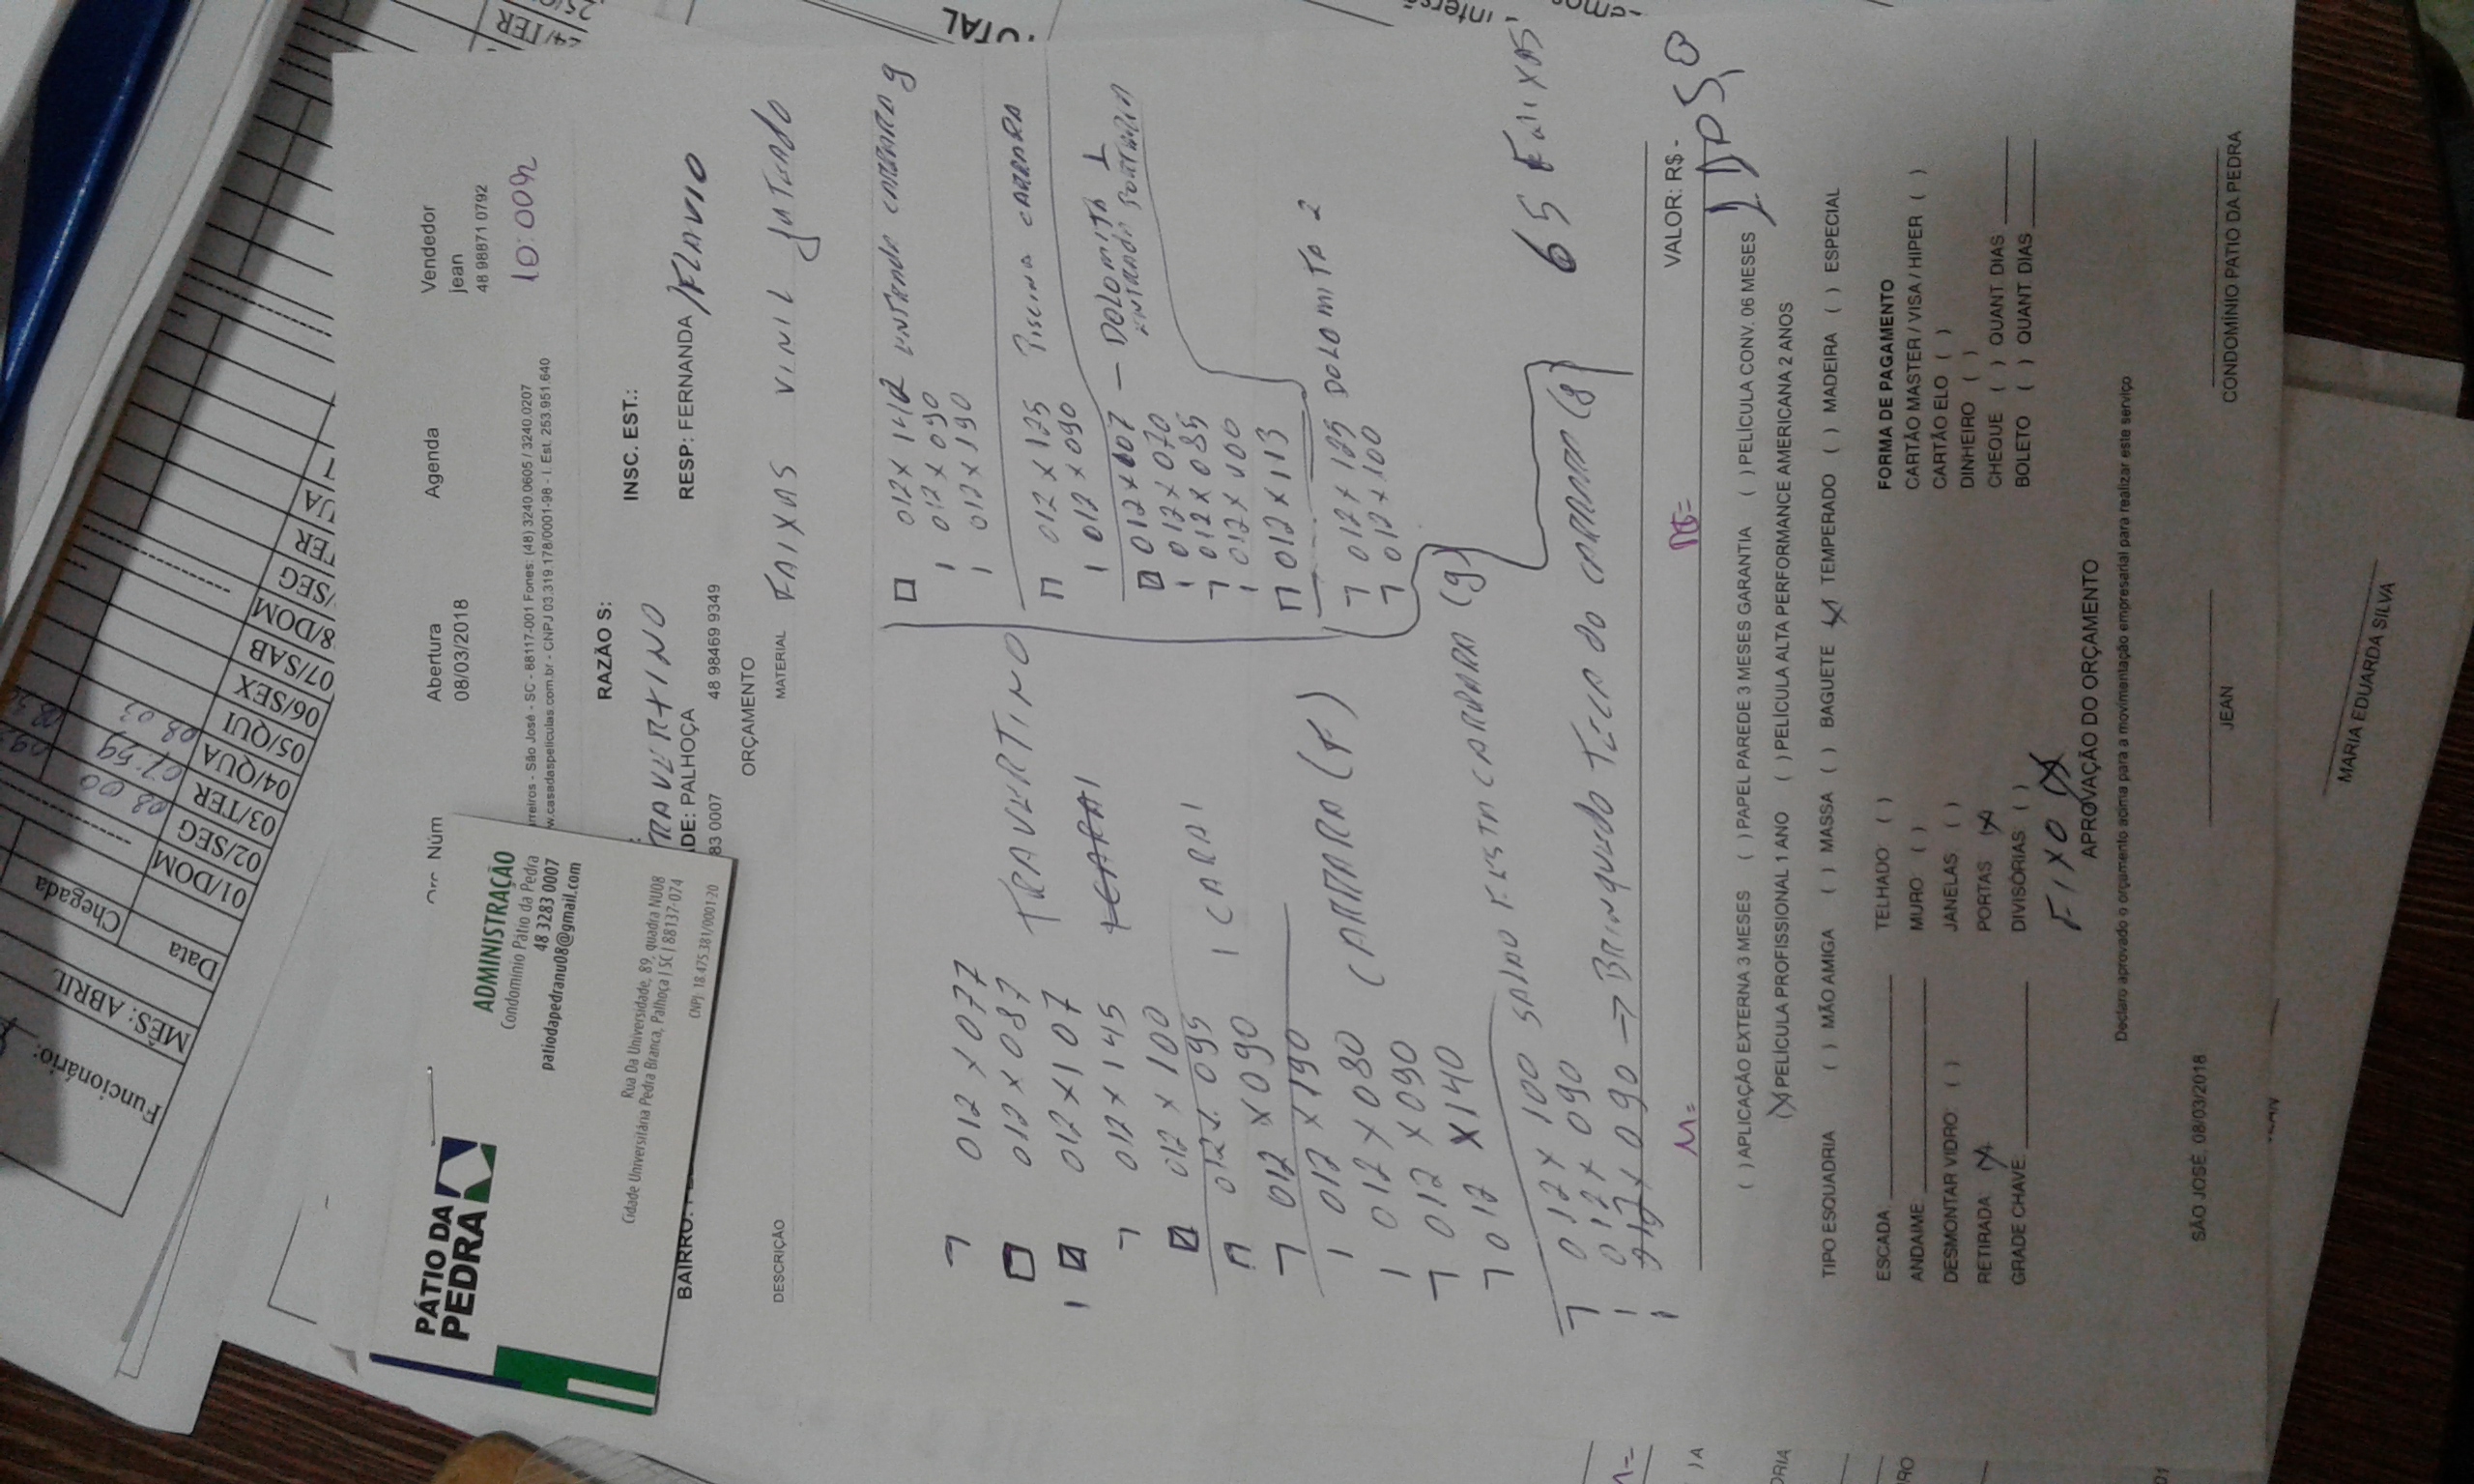 PÁTIO DA
PEDRA
ADMINISTRAÇÃO
Condomínio Pátio da Pedra
48 3283 0007
patiodapedranu08@gmail.com
Rua Da Universidade, 89, quadra NU08
Cidade Universitária Pedra Branca, Palhoça | SC | 88137-074
CNPJ 18.475.381/0001-20
Abertura
08/03/2018
Agenda
Vendedor
jean
48 98871 0792
10:00h
rreiros - São José - SC - 88117-001 Fones: (48) 3240.0605 / 3240.0207
w.casadaspeliculas.com.br - CNPJ 03.319.178/0001-98 - I. Est. 253.951.640
RAZÃO S:
INSC. EST.:
TRAVERTINO
RESP: FERNANDA /FLAVIO
ADE: PALHOÇA
BAIRRO:
83 0007
48 98469 9349
ORÇAMENTO
DESCRIÇÃO
MATERIAL
FAIXAS VINIL JATEADO
012 x 077
012 x 087 TRAVERTINO
012 x 107
012 x 145
012 x 100
012 x 095 ICARAI
012 x 090
012 x 190
012 x 080 CARRARA
012 x 090
012 x 140
012 x 100 SALÃO FESTA CARRARA (9)
012 x 090
012 x 090 → BRINQUEDO TECA do CARRARA (8)
012 x 142 ENTRADA CARRARA 9
012 x 090
012 x 190
012 x 125 PISCINA CARRARA
012 x 090
012 x 007 — DOLOMITA 1
012 x 070
012 x 085
012 x 113
012 x 125 DOLOMITA 2
012 x 100
65 FAIXAS
M=
VALOR: R$ -
( ) APLICAÇÃO EXTERNA 3 MESES ( ) PAPEL PAREDE 3 MESES GARANTIA ( ) PELÍCULA CONV. 06 MESES
(X) PELÍCULA PROFISSIONAL 1 ANO ( ) PELÍCULA ALTA PERFORMANCE AMERICANA 2 ANOS
TIPO ESQUADRIA ( ) MÃO AMIGA ( ) MASSA ( ) BAGUETE (X) TEMPERADO ( ) MADEIRA ( ) ESPECIAL
ESCADA
TELHADO ( )
FORMA DE PAGAMENTO
ANDAIME
MURO ( )
CARTÃO MASTER / VISA / HIPER ( )
DESMONTAR VIDRO ( )
JANELAS ( )
CARTÃO ELO ( )
RETIRADA (X)
PORTAS (X)
DINHEIRO ( )
GRADE CHAVE:
DIVISÓRIAS ( )
CHEQUE ( ) QUANT. DIAS
BOLETO ( ) QUANT. DIAS
FIXO (X)
APROVAÇÃO DO ORÇAMENTO
Declaro aprovado o orçamento acima para a movimentação empresarial para realizar este serviço
SÃO JOSÉ, 08/03/2018
JEAN
CONDOMÍNIO PATIO DA PEDRA
MARIA EDUARDA SILVA
Funcionário:
MÊS: ABRIL
Data
Chegada
01/DOM
02/SEG
08 00
03/TER
07:59
04/QUA
08 03
05/QUI
06/SEX
07/SAB
8/DOM
/SEG